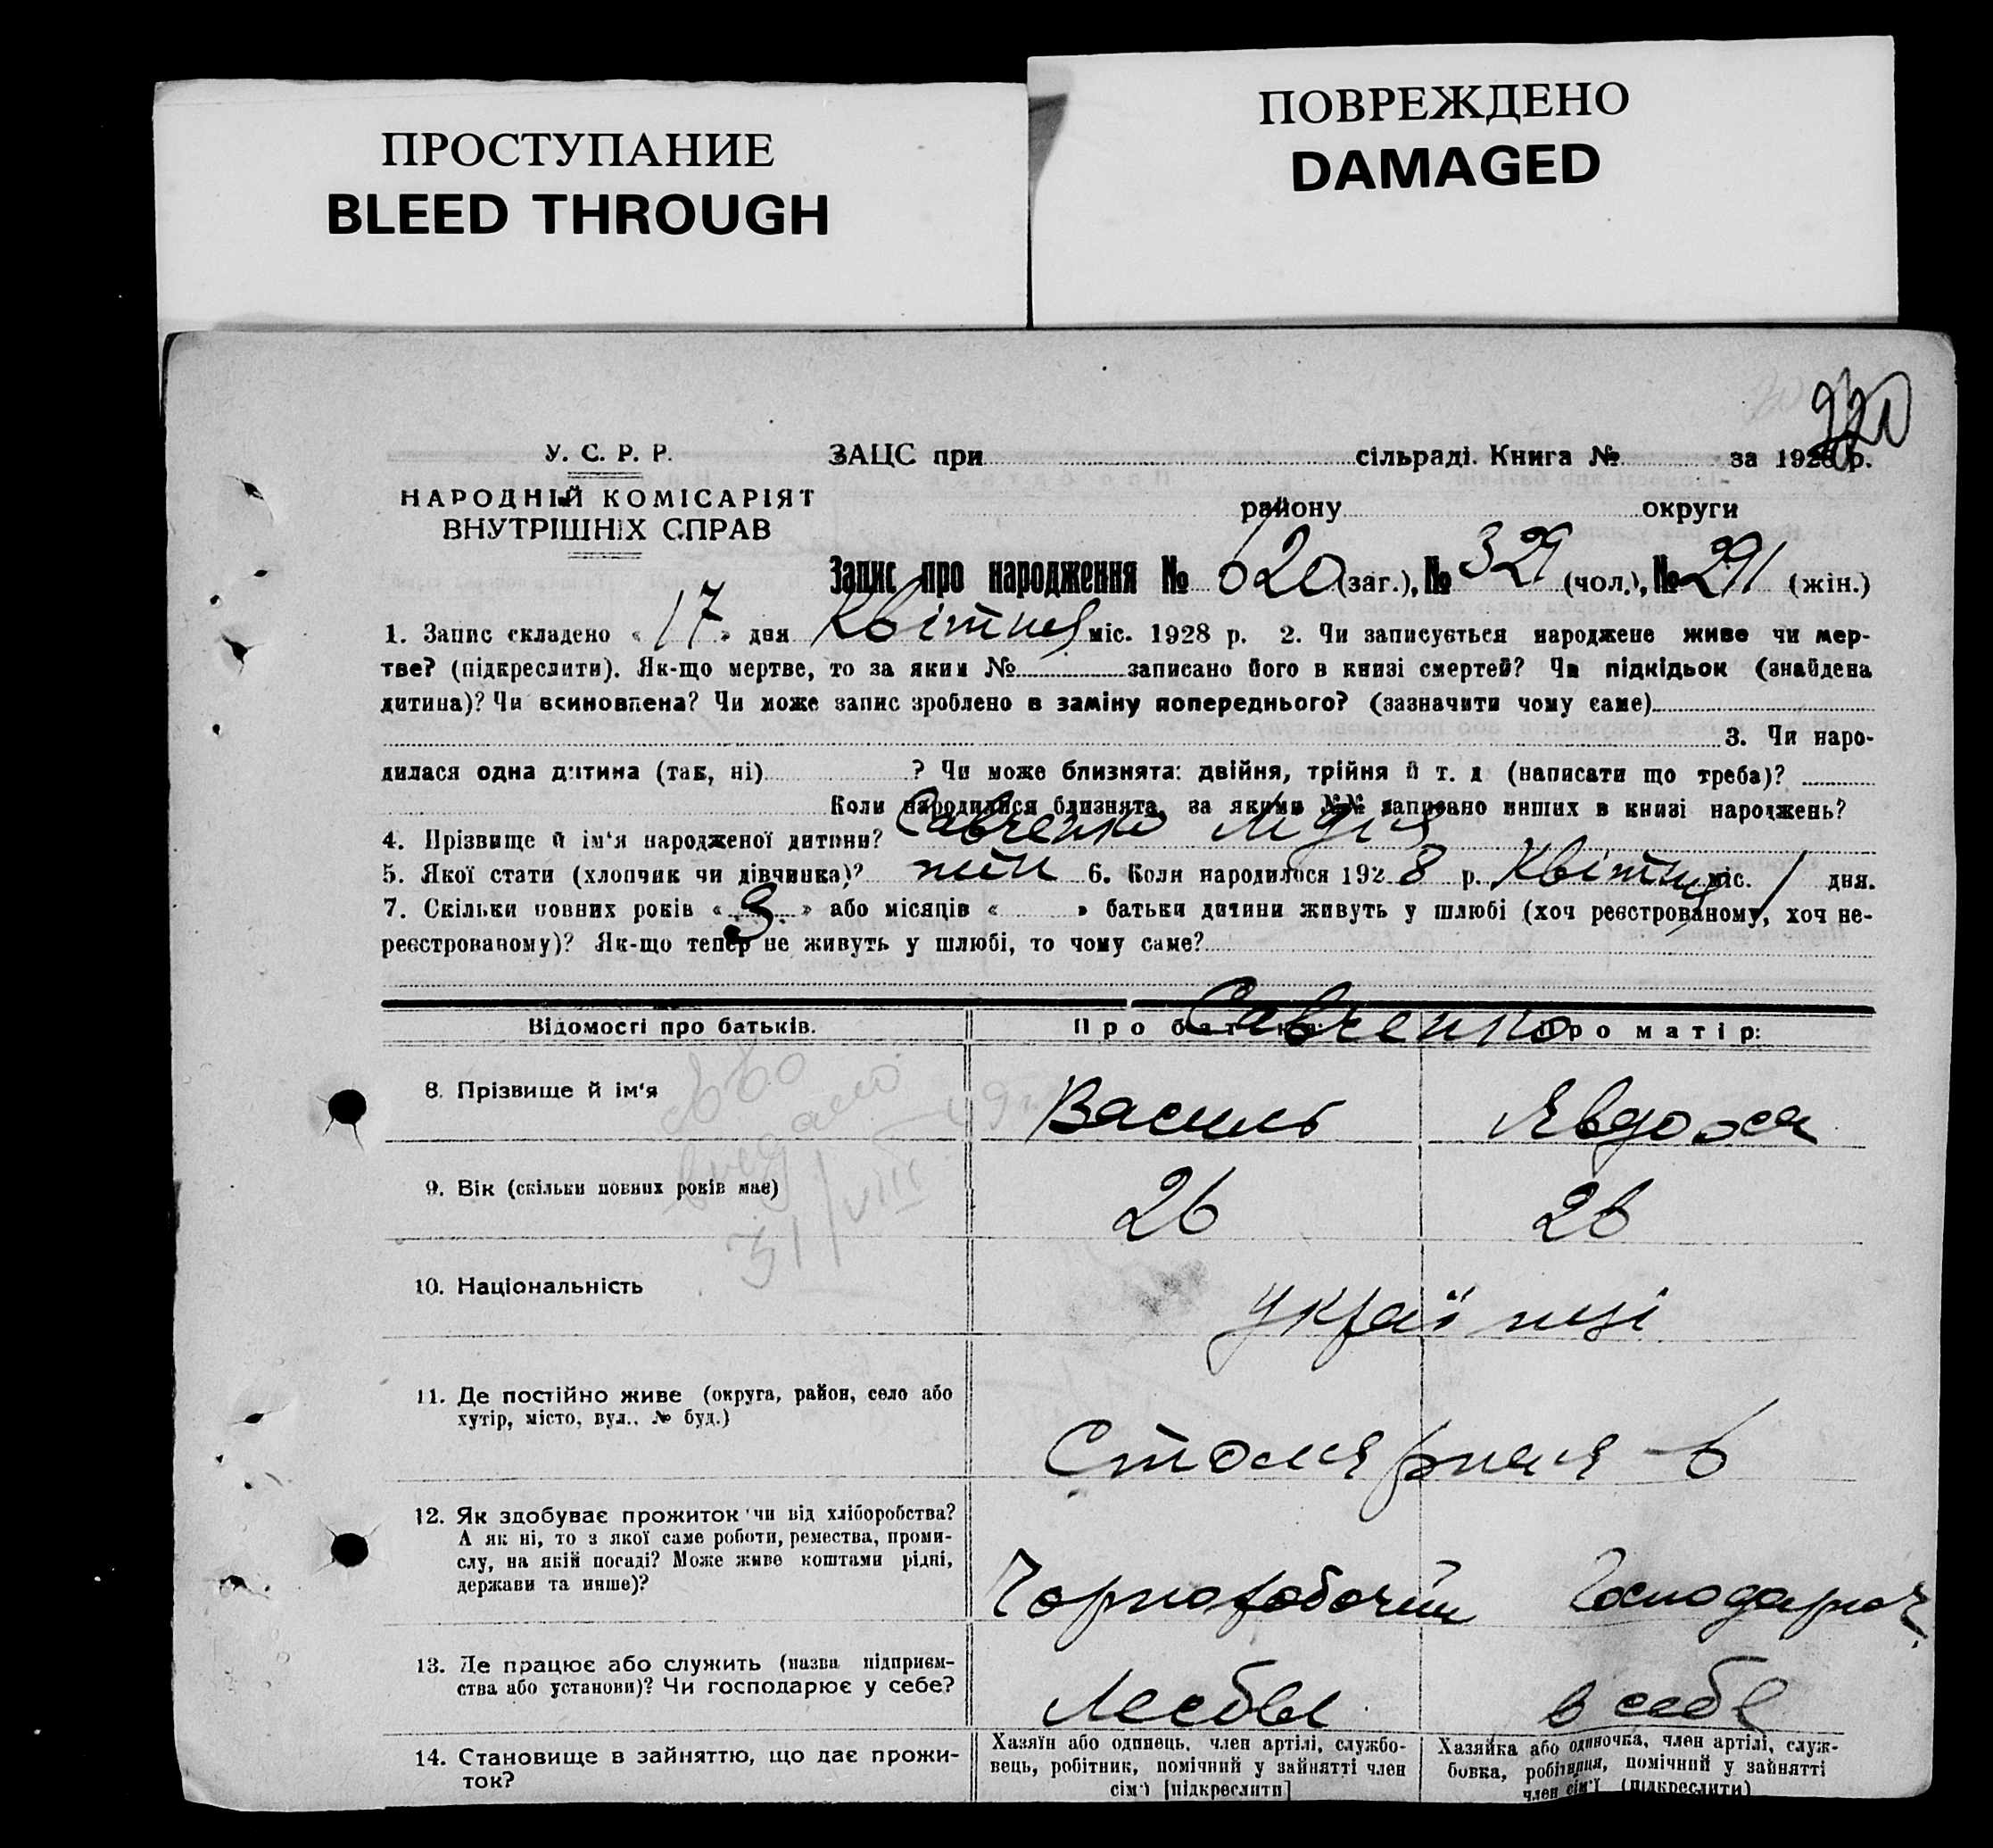 ПРОСТУПАНИЕ
BLEED THROUGH
ПОВРЕЖДЕНО
DAMAGED
У. С. Р. Р.
НАРОДНІЙ КОМІСАРІЯТ
ВНУТРІШНІХ СПРАВ
ЗАЦС при сільраді. Книга № за 1928 р.
району округи
Запис про народження № 620 (заг.), № 329 (чол.), № 291 (жін.)
1. Запис складено « 17 » дня Квітня міс. 1928 р. 2. Чи записується народжене живе чи мер-
тве? (підкреслити). Як-що мертве, то за яким № записано його в книзі смертей? Чи підкідьок (знайдена
дитина)? Чи всиновлена? Чи може запис зроблено в заміну попереднього? (зазначити чому саме)
3. Чи наро-
дилася одна дитина (так, ні) ? Чи може близнята: двійня, трійня й т. д (написати що треба)?
Коли народилися близнята, за якими №№ записано инших в книзі народжень?
4. Прізвище й ім'я народженої дитини? Савченко Лідія
5. Якої стати (хлопчик чи дівчинка)? 6. Коли народилося 1928 р. Квітня міс. 1 дня.
7. Скільки повних років « 3 » або місяців « » батьки дитини живуть у шлюбі (хоч реєстрованому, хоч не-
реєстрованому)? Як-що тепер не живуть у шлюбі, то чому саме?
Савченко
Відомості про батьків. Про батька: Про матір:
8. Прізвище й ім'я Василь Явдоха
9. Вік (скільки повних років має) 26 26
10. Національність Українці
11. Де постійно живе (округа, район, село або
хутір, місто, вул.. № буд.)
Столярная 6
12. Як здобуває прожиток чи від хліборобства?
А як ні, то з якої саме роботи, ремества, проми-
слу, на якій посаді? Може живе коштами рідні,
держави та инше)?
Чорноробочий
13. Де працює або служить (назва підприєм-
ства або установи)? Чи господарює у себе?
в себе
14. Становище в зайняттю, що дає прожи-
ток?
Хазяїн або одинець, член артілі, службо-
вець, робітник, помічний у зайнятті член
сім'ї [підкреслити]
Хазяйка або одиночка, член артілі, служ-
бовка, робітниця, помічний у зайнятті
член сім'ї (підкреслити)